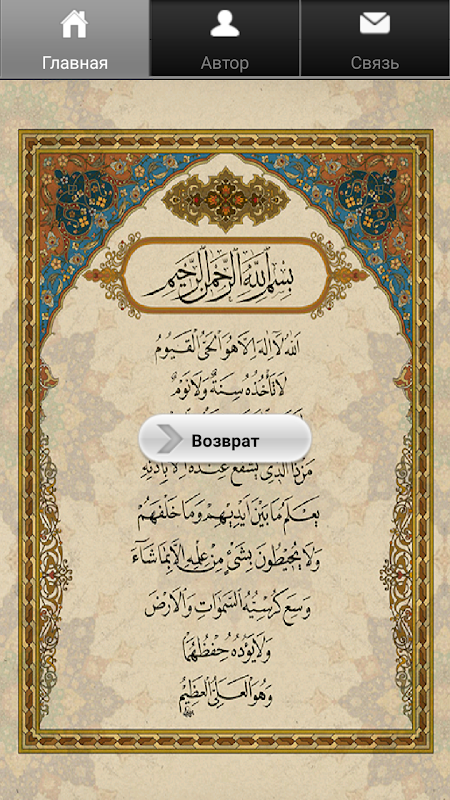 Главная
Автор
Связь
بسم الله الرحمن الرحيم
اَللّٰهُ لَا اِلٰهَ اِلَّا هُوَ الْحَيُّ الْقَيُّومُ
لَا تَأْخُذُهُ سِنَةٌ وَلَا نَوْمٌ
Возврат
مَنْ ذَا الَّذِي يَشْفَعُ عِنْدَهُ اِلَّا بِاِذْنِهِ
يَعْلَمُ مَا بَيْنَ اَيْدِيهِمْ وَمَا خَلْفَهُمْ
وَلَا يُحِيطُونَ بِشَيْءٍ مِنْ عِلْمِهِ اِلَّا بِمَا شَاءَ
وَسِعَ كُرْسِيُّهُ السَّمٰوَاتِ وَالْاَرْضَ
وَلَا يَؤُدُهُ حِفْظُهُمَا
وَهُوَ الْعَلِيُّ الْعَظِيمُ